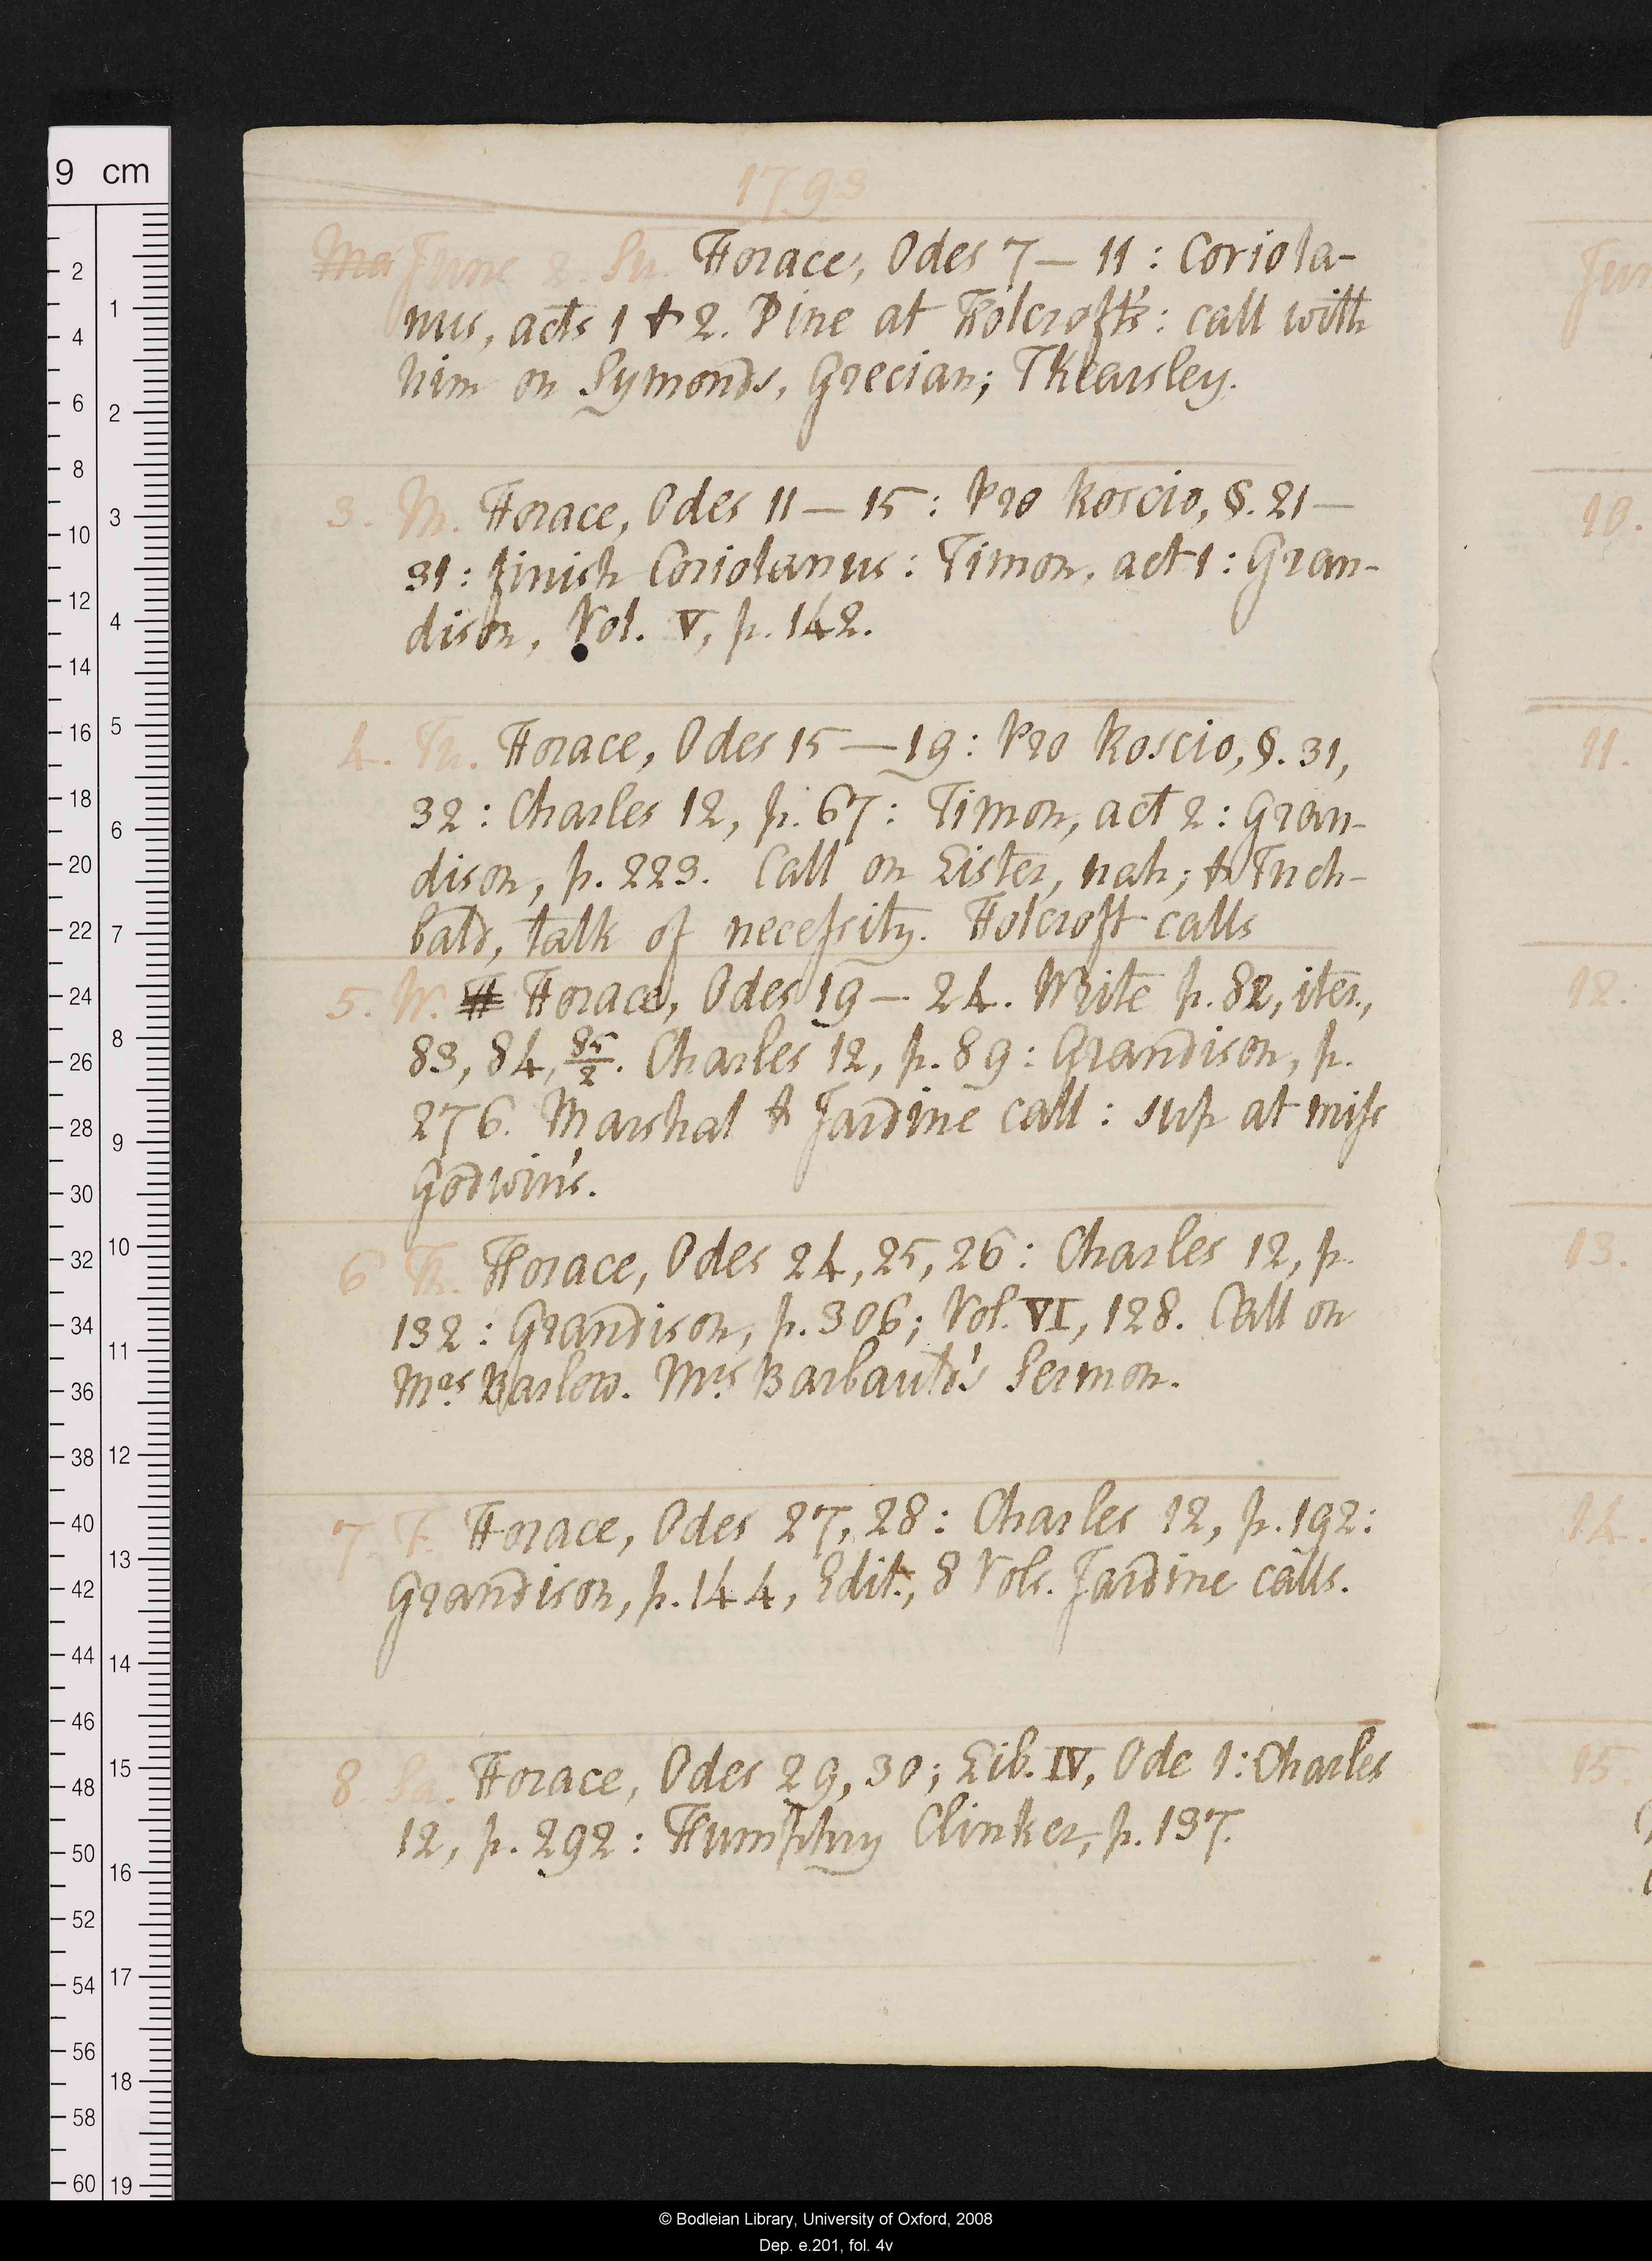 1793
Ma June 2. Su. Horace, Odes 7 — 11 : Coriola-
nus, acts 1 & 2. Dine at Holcroft's : call with
him on Symonds, Grecian; T Kearsley.
3. M. Horace, Odes 11 — 15 : Pro Roscio, §. 21 —
31 : finish Coriolanus : Timon, act 1 : Gran-
dison, Vol. V, p. 142.
4. Tu. Horace, Odes 15 — 19 : Pro Roscio, §. 31,
32 : Charles 12, p. 67 : Timon, act 2 : Gran-
dison, p. 223. Call on Lister, nah; & Inch-
bald, talk of necessity. Holcroft calls
5. W. H Horace, Odes 19 — 24. Write p. 82, iter.,
83, 84, 85/2. Charles 12, p. 89 : Grandison, p.
276. Marshal & Jardine call : sup at miss
Godwin's.
6 Th. Horace, Odes 24, 25, 26 : Charles 12, p.
132 : Grandison, p. 306; Vol. VI, 128. Call on
Mrs Barlow. Mrs Barbauld's Sermon.
7 F. Horace, Odes 27, 28 : Charles 12, p. 192 :
Grandison, p. 144, Edit., 8 Vols. Jardine calls.
8. Sa. Horace, Odes 29, 30; Lib. IV, Ode 1 : Charles
12, p. 292 : Humphry Clinker, p. 137.
Jun
10.
11.
12.
13.
14.
15.
9 cm
2
4
6
8
10
12
14
16
18
20
22
24
26
28
30
32
34
36
38
40
42
44
46
48
50
52
54
56
58
60
1
2
3
4
5
6
7
8
9
10
11
12
13
14
15
16
17
18
19
© Bodleian Library, University of Oxford, 2008
Dep. e.201, fol. 4v